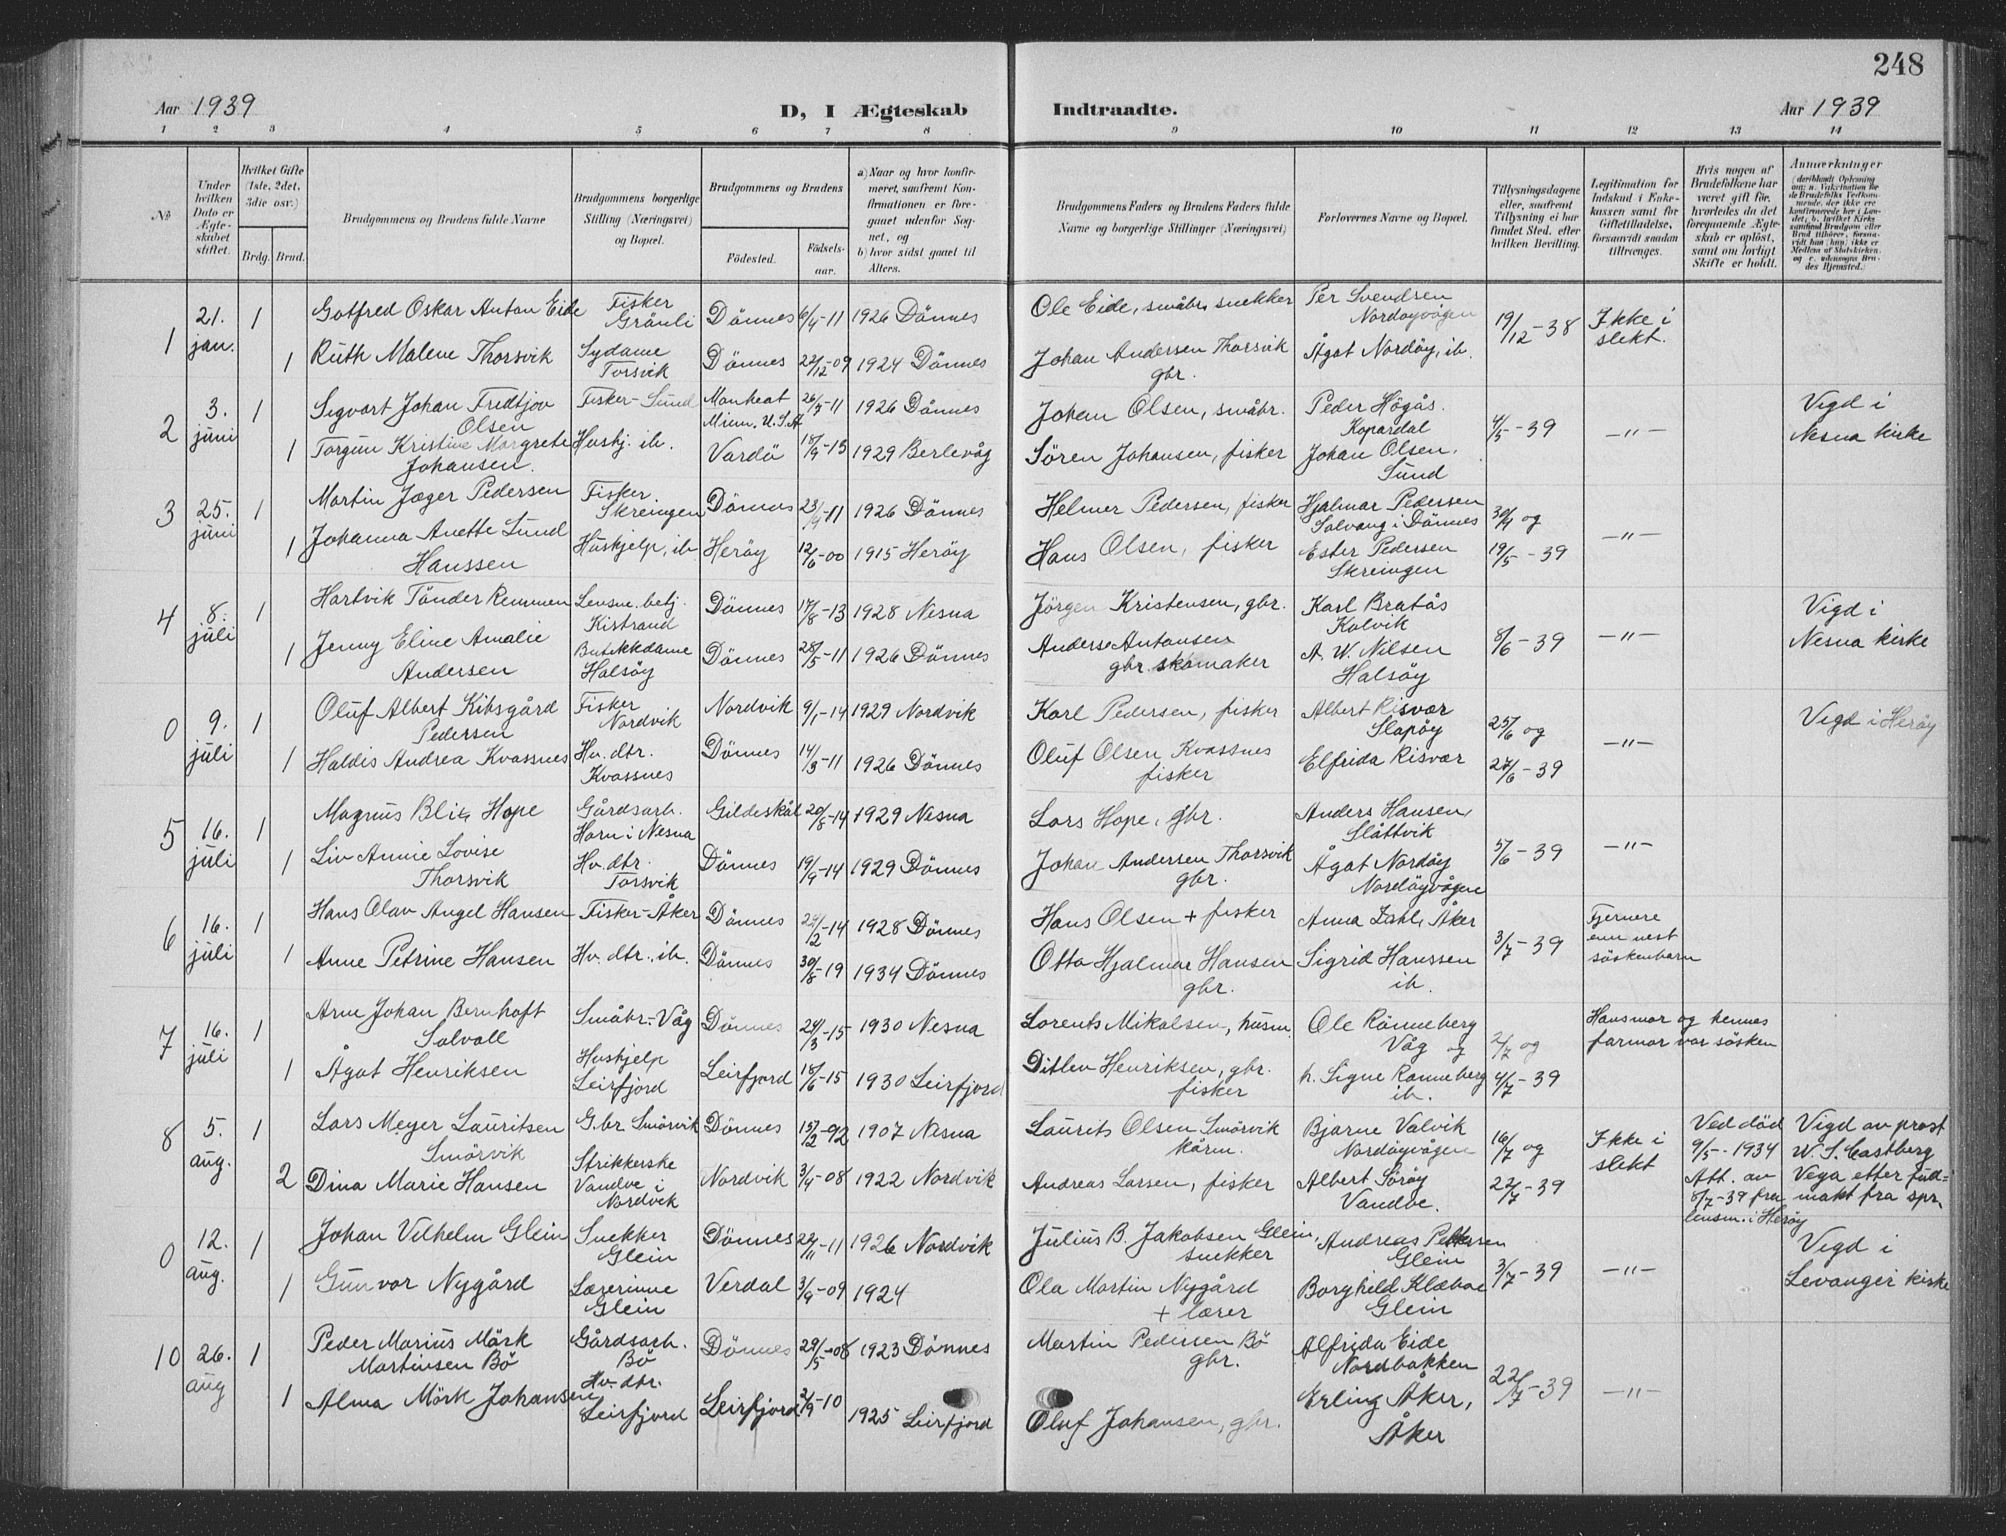 248
Aar 1939
D, I Ægteskab
Indtraadte.
Aar 1939
1 2 3 4 5 6 7 8 9 10 11 12 13 14
№
Under hvilken Dato er Ægteskabet stiftet.
Hvilket Gifte (1ste, 2det, 3die osv.)
Brdg. Brud.
Brudgommens og Brudens fulde Navne
Brudgommens borgerlige Stilling (Næringsvei) og Bopæl.
Brudgommens og Brudens
Födested.
Födselsaar.
a) Naar og hvor konfirmeret, saafremt Konfirmationen er foregaaet udenfor Sognet, og
b) hvor sidst gaaet til Alters.
Brudgommens Faders og Brudens Faders fulde Navne og borgerlige Stillinger (Næringsvei)
Forlovernes Navne og Bopæl.
Tillysningsdagene eller, saafremt Tillysning ei har fundet Sted, efter hvilken Bevilling.
Legitimation for Indskud i Enkekassen samt for Giftetilladelse, forsaavidt saadan tiltrænges.
Hvis nogen af Brudefolkene har været gift før, hvorledes da det foregaaende Ægteskab er opløst, samt om lovligt Skifte er holdt.
Anmærkninger
1 21. jan. 1 Gotfred Oskar Anton Eide Fisker Grånli Dönnes 6/4-11 1926 Dönnes Ole Eide, småbr, snekker Per Svendsen Nordöyvågen 19/12-38 Ikke i slekt.
1 Ruth Malene Thorsvik Sydame Torsvik Dönnes 22/12-09 1924 Dönnes Johan Andersen Thorsvik gbr. Ågot Nordöy, ib.
2 3. juni 1 Sigvart Johan Fredtjov Olsen Fisker-Sund Minn. U.S.A 26/7-11 1926 Dönnes Johan Olsen, småbr. Peder Högås. Kopardal 4/5-39 -"- Vigd i Nesna kirke
1 Torgun Kristine Margrete Johansen. Hushj. ib. Vardö 18/9-13 1929 Berlevåg Sören Johansen, fisker Johan Olsen, Sund
3 25. juni 1 Martin Jæger Pedersen Fisker. Skreingen Dönnes 23/9-11 1926 Dönnes Helmer Pedersen, fisker Hjalmar Pedersen Solvang i Dönnes 30/4 og
1 Johanna Anette Sund Hanssen Hushjelp, ib Heröy 12/6-00 1915 Heröy Hans Olsen, fisker Ester Pedersen Skreingen 19/5-39 -"-
4 8. juli 1 Hartvik Tönder Remmen Lensm. betj. Kistrand Dönnes 17/8-13 1928 Nesna Jörgen Kristensen, gbr. Karl Bratås Kalvik 8/6-39 -"- Vigd i Nesna kirke
1 Jenny Eline Amalie Andersen Butikkdame Halsöy Dönnes 28/5-11 1926 Dönnes Anders Antonsen gbr. skomaker A. W. Nilsen Halsöy
0 9. juli 1 Oluf Albert Kibsgård Pedersen Fisker Nordvik Nordvik 9/1-14 1929 Nordvik Karl Pedersen, fisker Albert Risvær Slapöy 25/6 og Vigd i Heröy
1 Haldis Andrea Kvassnes Hv. dtr. Kvassnes Dönnes 14/3-11 1926 Dönnes Oluf Olsen Kvassnes fisker Elfrida Risvær 27/6-39 -"-
5 16. juli 1 Magnus Blix Hope Gårdsarb. Horn i Nesna Gildeskål 20/8-14 1929 Nesna Lars Hope, gbr. Anders Hansen, Slåttvik 5/6-39 -"-
1 Liv Annie Lovise Thorsvik Hv. dtr. Torsvik Dönnes 19/9-14 1929 Dönnes Johan Andersen Thorsvik gbr. Ågot Nordöy Nordöyvågen
6 16. juli 1 Hans Olav Angel Hansen Fisker-Åker Dönnes 24/2-14 1928 Dönnes Hans Olsen + fisker Anna Zahl, Åker 3/7-39 Fjernere enn nest söskenbarn
1 Anne Petrine Hansen Hv. dtr., ib. Dönnes 30/8-19 1934 Dönnes Otto Hjalmar Hansen gbr. Sigrid Hanssen ib.
7 16. juli 1 Arne Johan Bernhoft Solvoll Småbr.-Våg Dönnes 24/3-15 1930 Nesna Lorents Mikalsen, husm Ole Rönneberg Våg og 2/7 og Hans mor og hennes farmor var sösken
1 Ågot Henriksen Hushjelp Leirfjord Leirfjord 18/6-15 1930 Leirfjord Ditlev Henriksen, gbr. fisker h. Signe Ronneberg ib. 4/7-39
8 5. aug. 1 Lars Meyer Lauritsen Smörvik G.br Smörvik Dönnes 15/2-92 1907 Nesna Laurits Olsen Smörvik kårm. Bjarne Valvik Nordöyvågen 16/7 og Ikke i slekt Ved död 9/5-1934 Att. av 8/7-39 fra lensm. i Heröy Vigd av prost W. S. Castberg Vega etter fullmakt fra spr.
2 Dina Marie Hansen Strikkerske Vandve i Nordvik Nordvik 3/4-08 1922 Nordvik Andreas Larsen, fisker Albert Söröy Vandve. 22/7-39
0 12. aug. 1 Johan Vilhelm Glein Snekker Glein Dönnes 22/11-11 1926 Nordvik Julius B. Jakobsen Glein, snekker Andreas Pettersen Glein 3/7-39 -"- Vigd i Levanger kirke
1 Gunvor Nygård Lærerinne Glein Verdal 3/9-09 1924 Ola Martin Nygård + lærer Borghild Klæboe Glein
10 26. aug 1 Peder Marius Mörk Martinsen Bö Gårdsarb. Bö Dönnes 29/5-08 1923 Dönnes Martin Pedersen Bö gbr. Alfrida Eide Nordbakken 22/7-39 -"-
1 Alma Mörk Johansen Hv. dtr. Leirfjord Leirfjord 2/9-10 1925 Leirfjord Oluf Johansen, gbr. Erling Åker, Åker